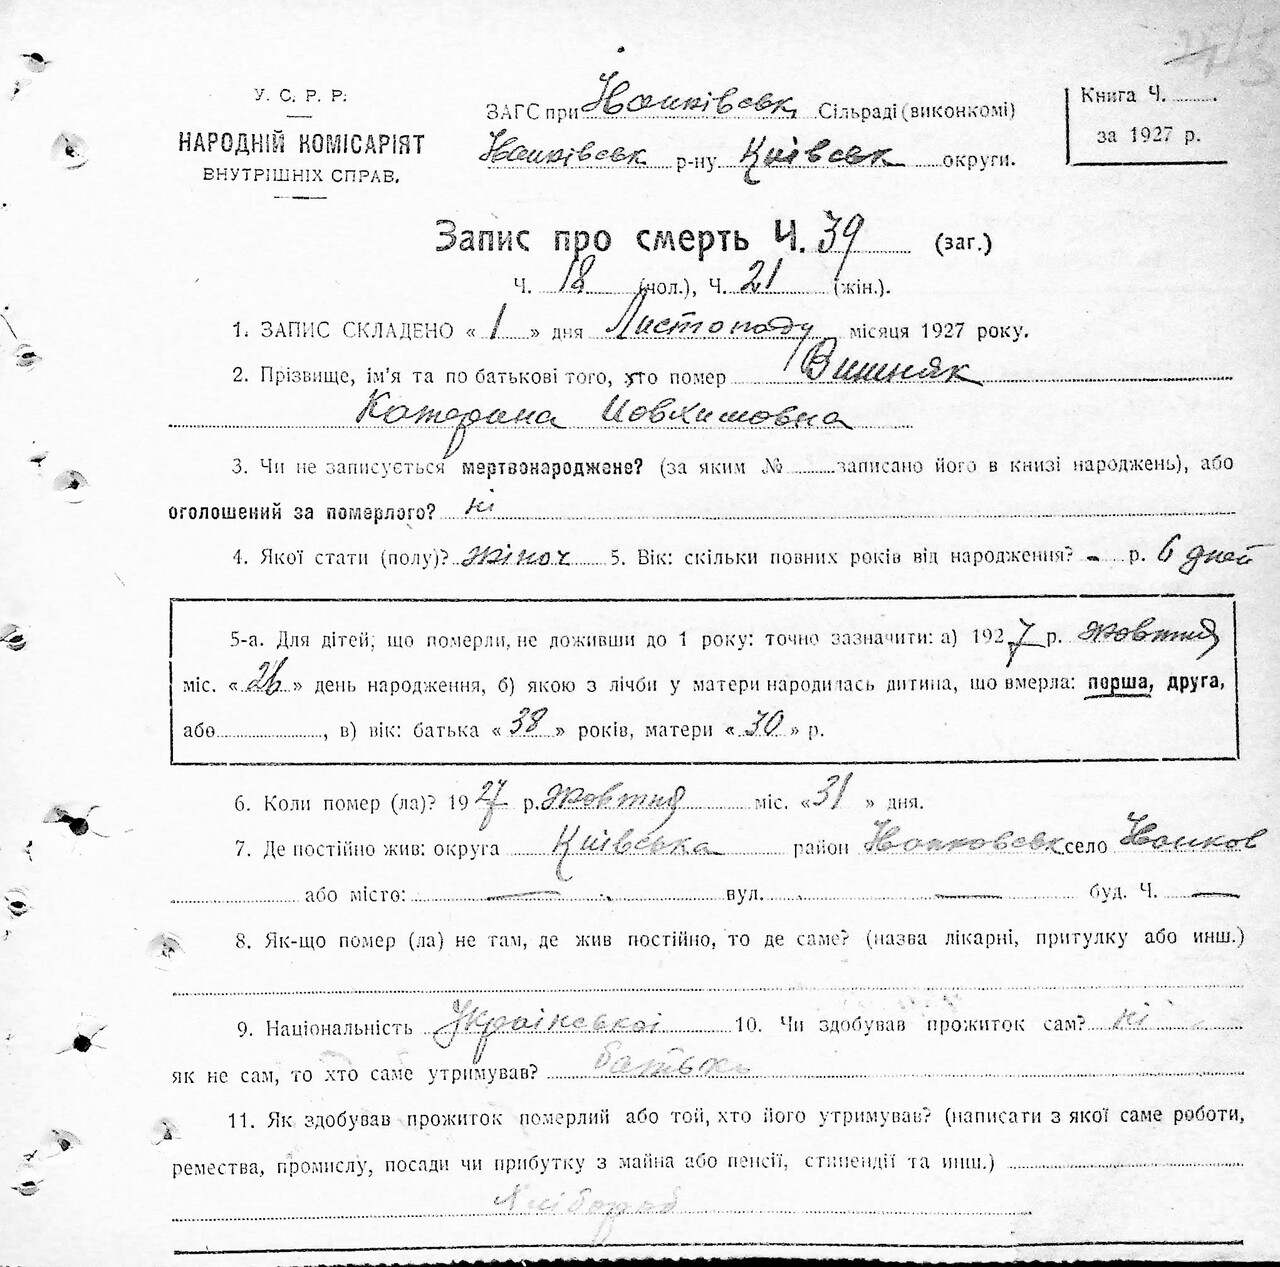 У. С. Р. Р.
НАРОДНІЙ КОМІСАРІЯТ
ВНУТРІШНІХ СПРАВ.
ЗАГС при Сільраді (виконкомі)
р-ну Київськ округи.
Книга Ч.
за 1927 р.
Запис про смерть Ч. 39 (заг.)
Ч. 18 (чол.), Ч. 21 (жін.).
1. ЗАПИС СКЛАДЕНО « 1 » дня Листопаду місяця 1927 року.
2. Прізвище, ім'я та по батькові того, хто помер Вишняк
Катерина
3. Чи не записується мертвонароджене? (за яким № записано його в книзі народжень), або
оголошений за померлого? ні
4. Якої стати (полу)? жіноч 5. Вік: скільки повних років від народження? - р. 6 дней
5-а. Для дітей, що померли, не доживши до 1 року: точно зазначити: а) 1927 р. жовтня
міс. « 26 » день народження, б) якою з лічби у матери народилась дитина, що вмерла: перша, друга,
або , в) вік: батька « 38 » років, матери « 30 » р.
6. Коли помер (ла)? 1927 р. жовтня міс. « 31 » дня.
7. Де постійно жив: округа Київська район село
або місто: — вул. — буд. Ч. —
8. Як-що помер (ла) не там, де жив постійно, то де саме? (назва лікарні, притулку або инш.)
9. Національність Українськоі 10. Чи здобував прожиток сам? ні
як не сам, то хто саме утримував? батько
11. Як здобував прожиток померлий або той, хто його утримував? (написати з якої саме роботи,
ремества, промислу, посади чи прибутку з майна або пенсії, стипендії та инш.)
Хлібороб